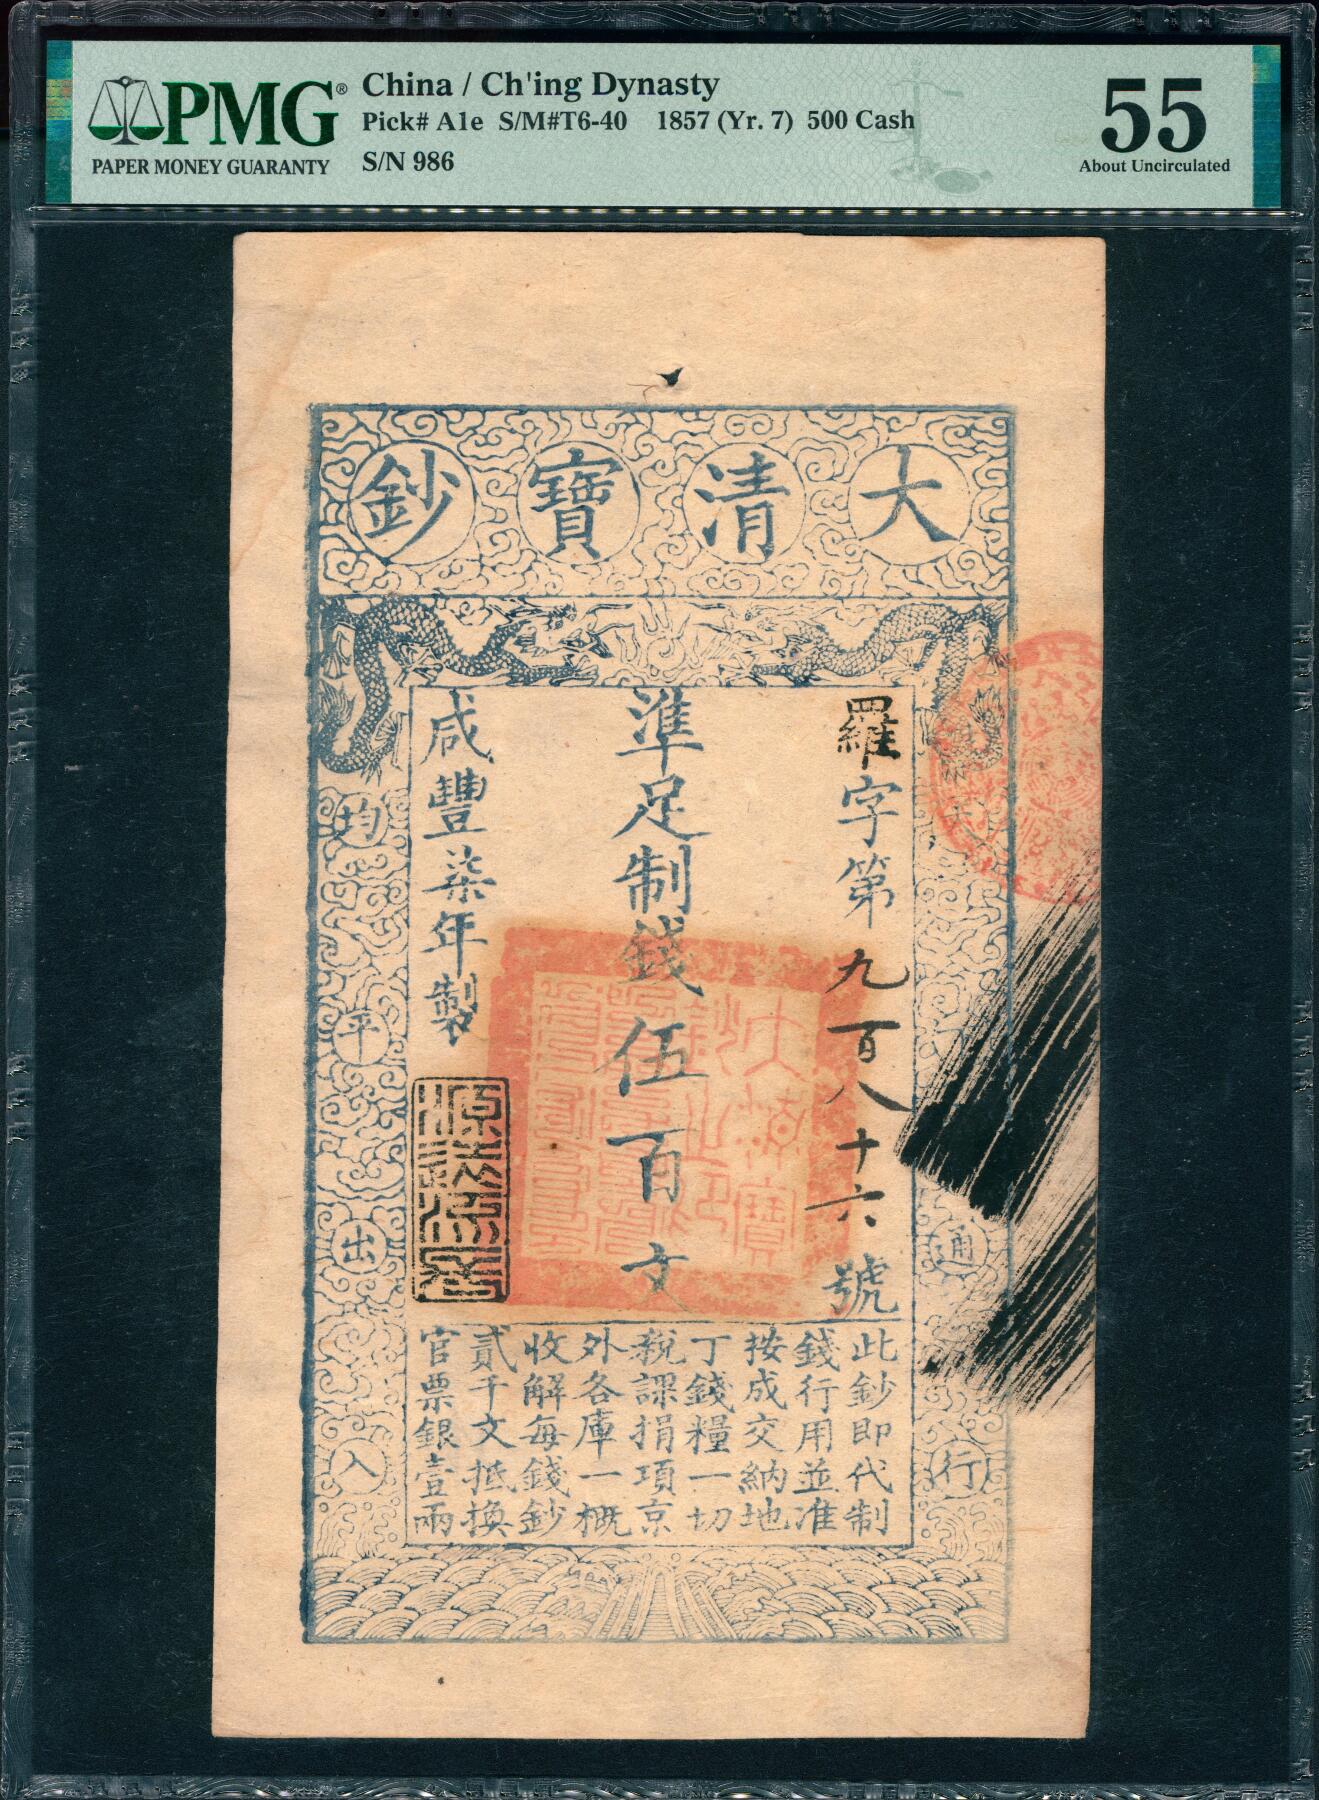 PMG®
PAPER MONEY GUARANTY
China / Ch'ing Dynasty
Pick# A1e S/M#T6-40 1857 (Yr. 7) 500 Cash
S/N 986
55
About Uncirculated
大清寶鈔
羅字第九百八十六號
準足制錢伍百文
咸豐柒年製
天
通行
均平出入
此鈔即代制
錢行用並准
按成交納地
丁錢糧一切
稅課捐項京
外各庫一概
收解每錢鈔
貳千文抵換
官票銀壹兩
大清寶
鈔之印